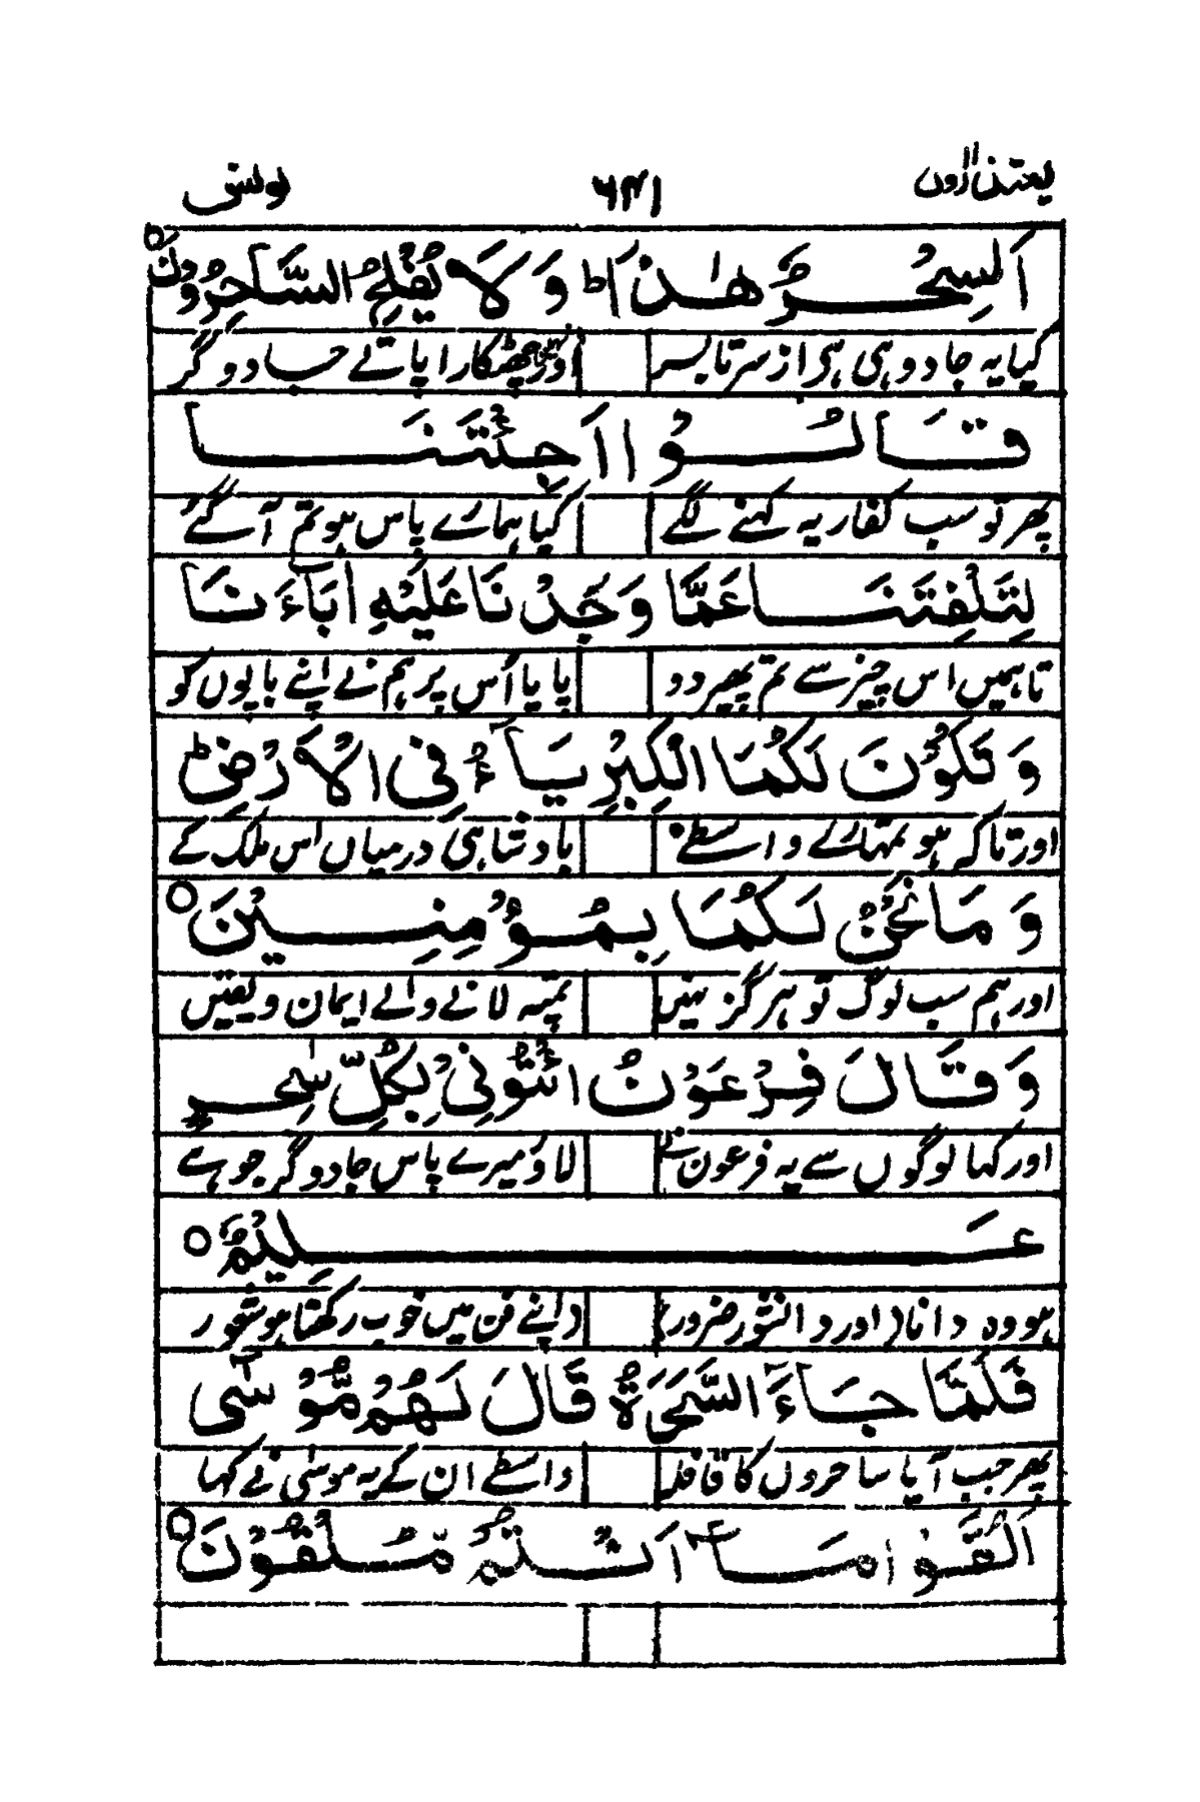 یعتذرون ۶۴۱ یونس
اَسِحْرٌ هٰذَا ؕ وَلَا یُفْلِحُ السَّاحِرُوْنَ ○
کیا یہ جادو ہی ہے از سر تا بسر اور نہیں چھٹکارا پاتے جادوگر
قَالُوْا اَجِئْتَنَا
پھر تو سب کفار یہ کہنے لگے کیا ہمارے پاس ہو تم آگئے
لِتَلْفِتَنَا عَمَّا وَجَدْنَا عَلَیْهِ اٰبَآءَنَا
تا ہمیں اس چیز سے تم پھیر دو پایا اُس پر ہم نے اپنے باپوں کو
وَتَكُوْنَ لَكُمَا الْكِبْرِیَآءُ فِی الْاَرْضِ ؕ
اور تاکہ ہو تمہارے واسطے بادشاہی درمیاں اس ملک کے
وَمَا نَحْنُ لَكُمَا بِمُؤْمِنِیْنَ ○
اور ہم سب لوگ تو ہرگز نہیں تمپہ لانے والے ایمان و یقیں
وَقَالَ فِرْعَوْنُ ائْتُوْنِیْ بِكُلِّ سٰحِرٍ
اور کہا لوگوں سے یہ فرعون نے لاؤ میرے پاس جادوگر جو ہے
عَلِیْمٌ ○
ہو وہ دانا (اور دانشور ضرور) (اپنے فن میں خوب رکھتا ہو شعور
فَلَمَّا جَآءَ السَّحَرَةُ قَالَ لَهُمْ مُّوْسٰۤی
پھر جب آیا ساحروں کا قافلہ واسطے ان کے یہ موسٰی نے کہا
اَلْقُوْا مَاۤ اَنْتُمْ مُّلْقُوْنَ ○